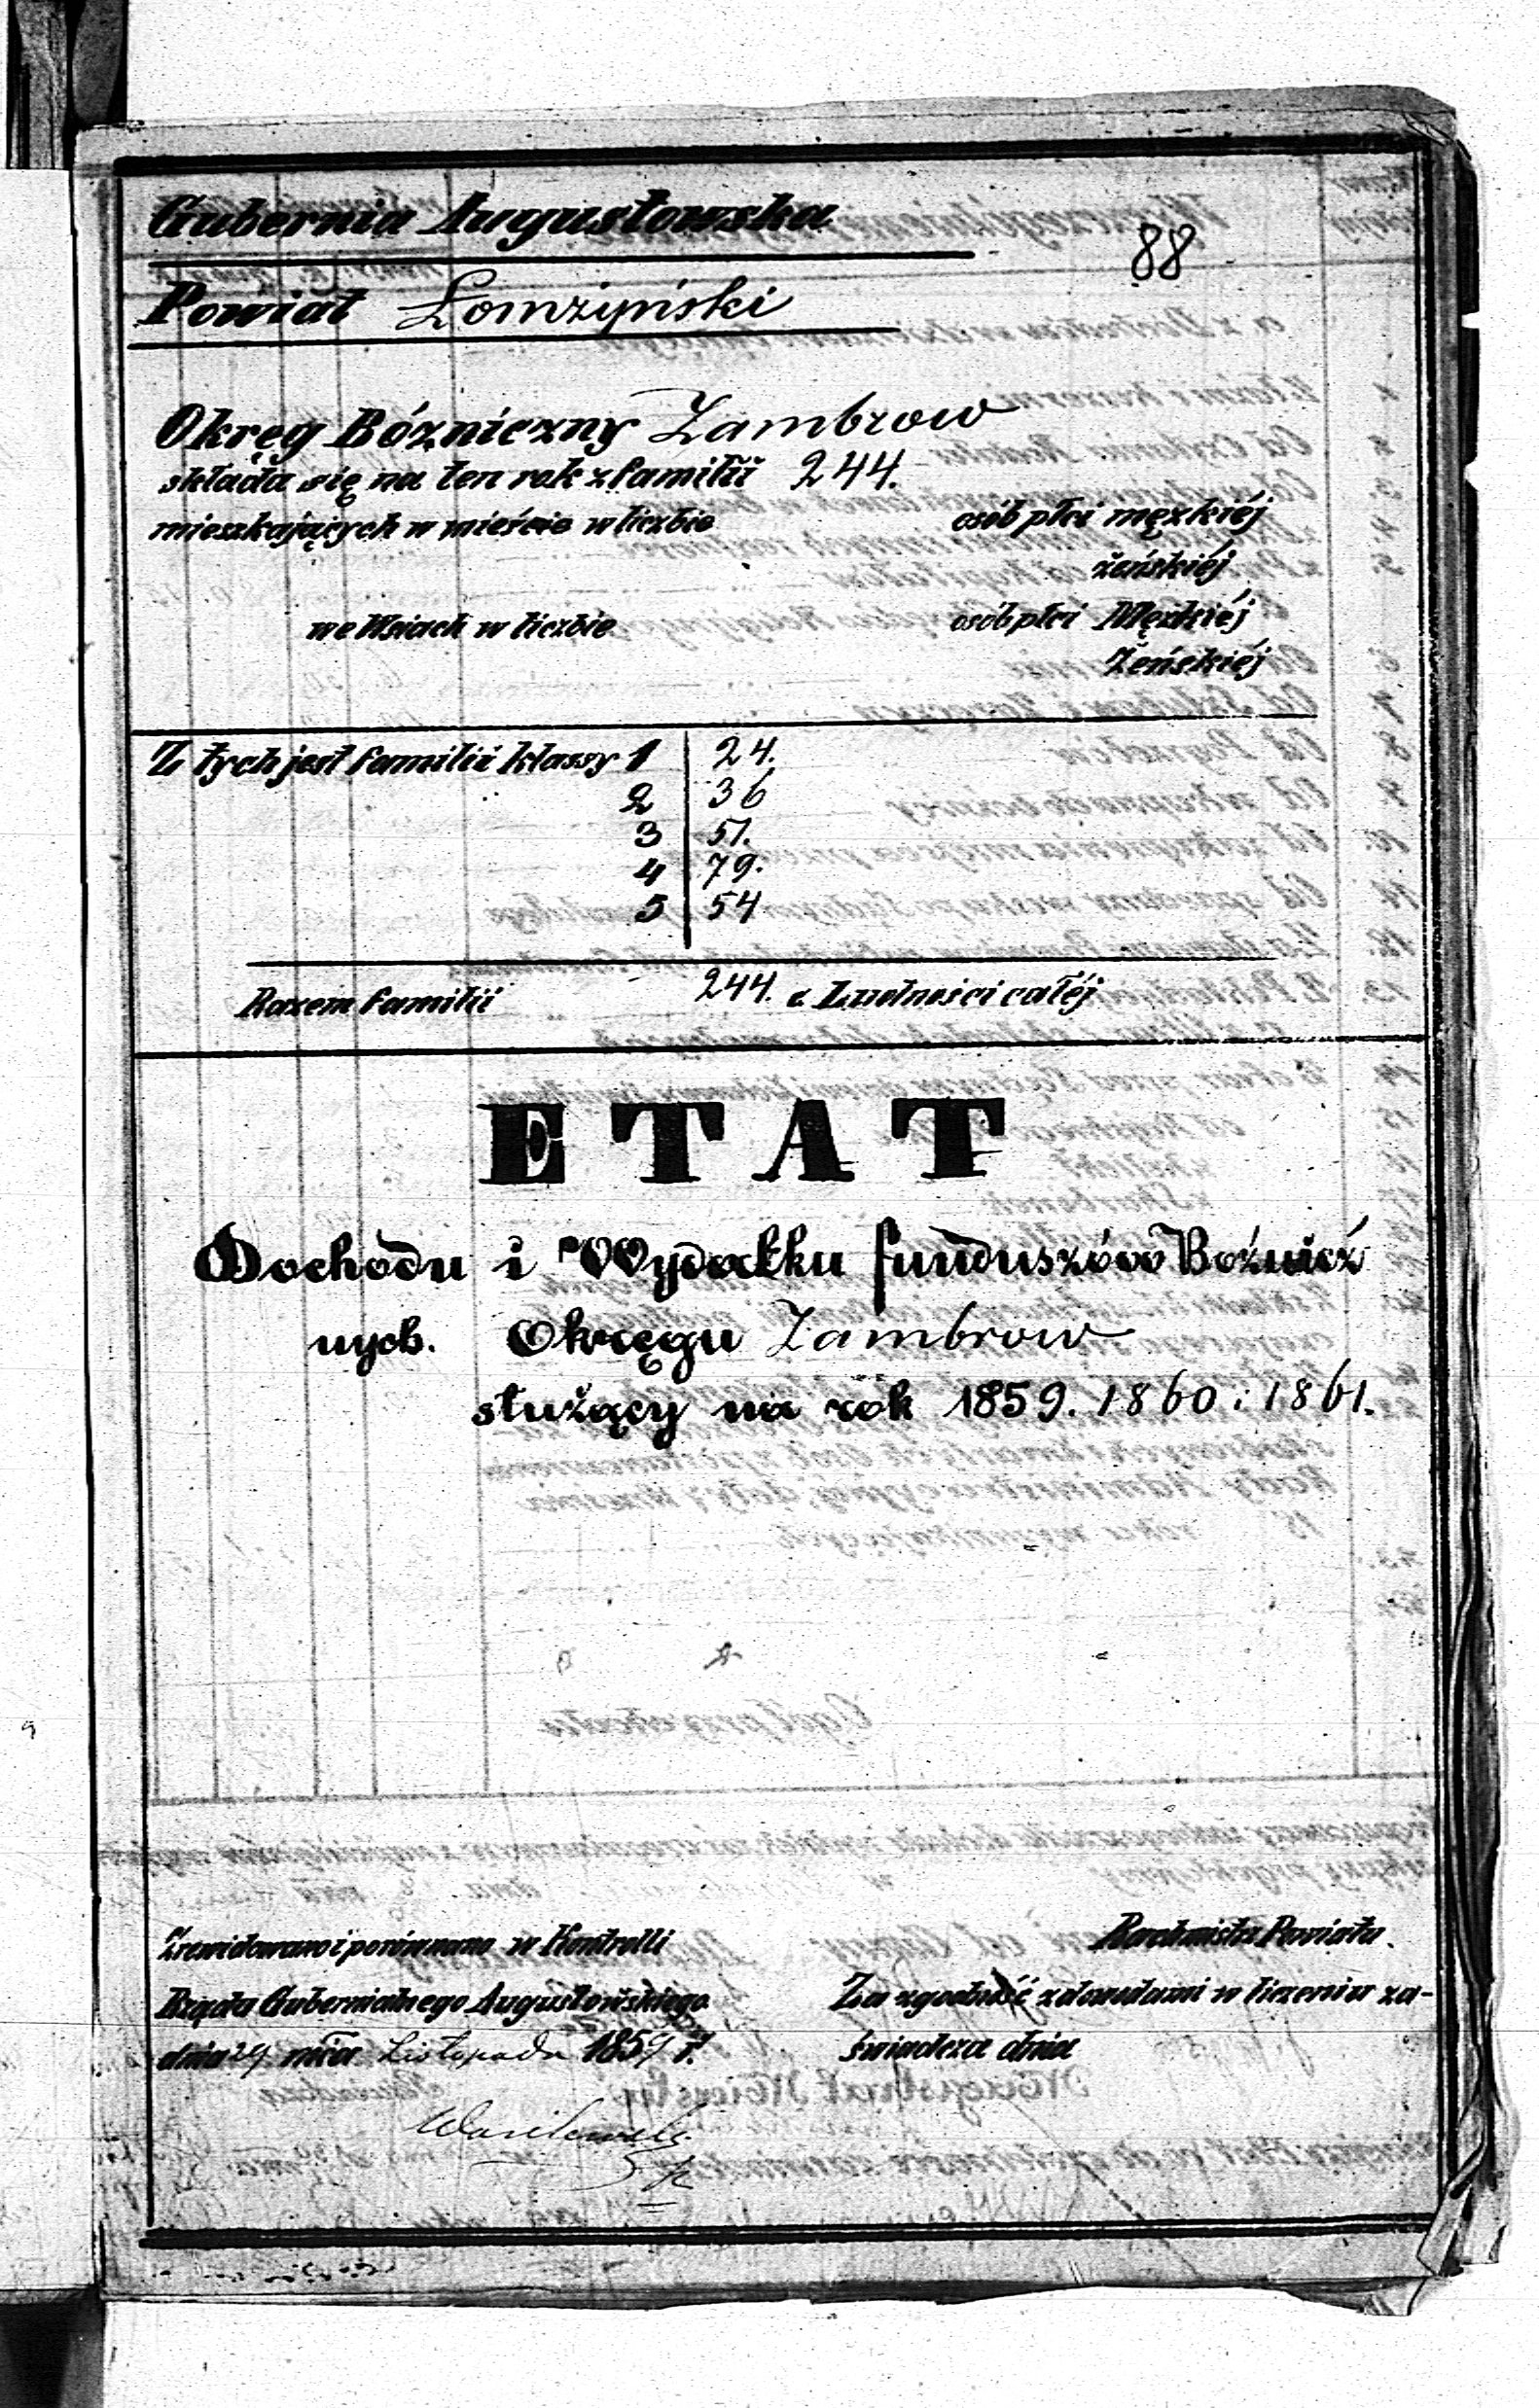 Gubernia Augustowska
88
Powiat Łomżyński
Okręg Bóżniczny Zambrow
składa się na ten rok z familii 244.
mieszkających w mieście w liczbie osób płci męzkiéj
żeńskiéj
we Wsiach w liczbie osób płci Męzkiéj
Żeńskiéj
Z tych jest familii klassy 1 24.
2 36
3 51.
4 79.
5 54
Razem familii 244. z Ludności całéj
ETAT
Dochodu i Wydatku funduszów Bóżnicz
nych. Okręgu Zambrow
służący na rok 1859. 1860 i 1861.
Zrewidowano i porównano w Kontrolli
Rządu Gubernialnego Augustowskiego
dnia 29 mca Listopada 1859 r.
Rachmistrz Powiatu.
Za zgodność z dowodami w liczeniu za-
świadcza dnia